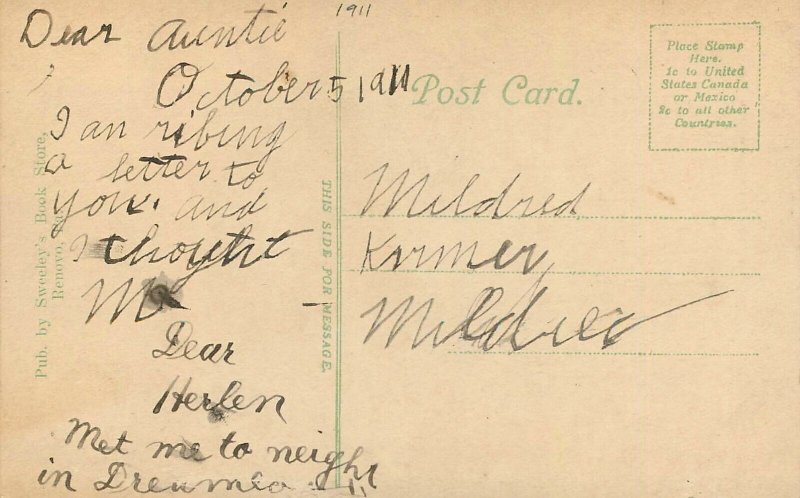 1911
Dear Auntie
October 5 1911
I an ribing
a letter to
you. and
I thoyht
M
Dear
Herlen
Met me to neight
in Dreumea
Pub. by Sweeley's Book Store,
Renovo, Pa.
THIS SIDE FOR MESSAGE.
Post Card.
Place Stamp
Here.
1c to United
States Canada
or Mexico
2c to all other
Countries.
Mildred
Krmer
Mildred